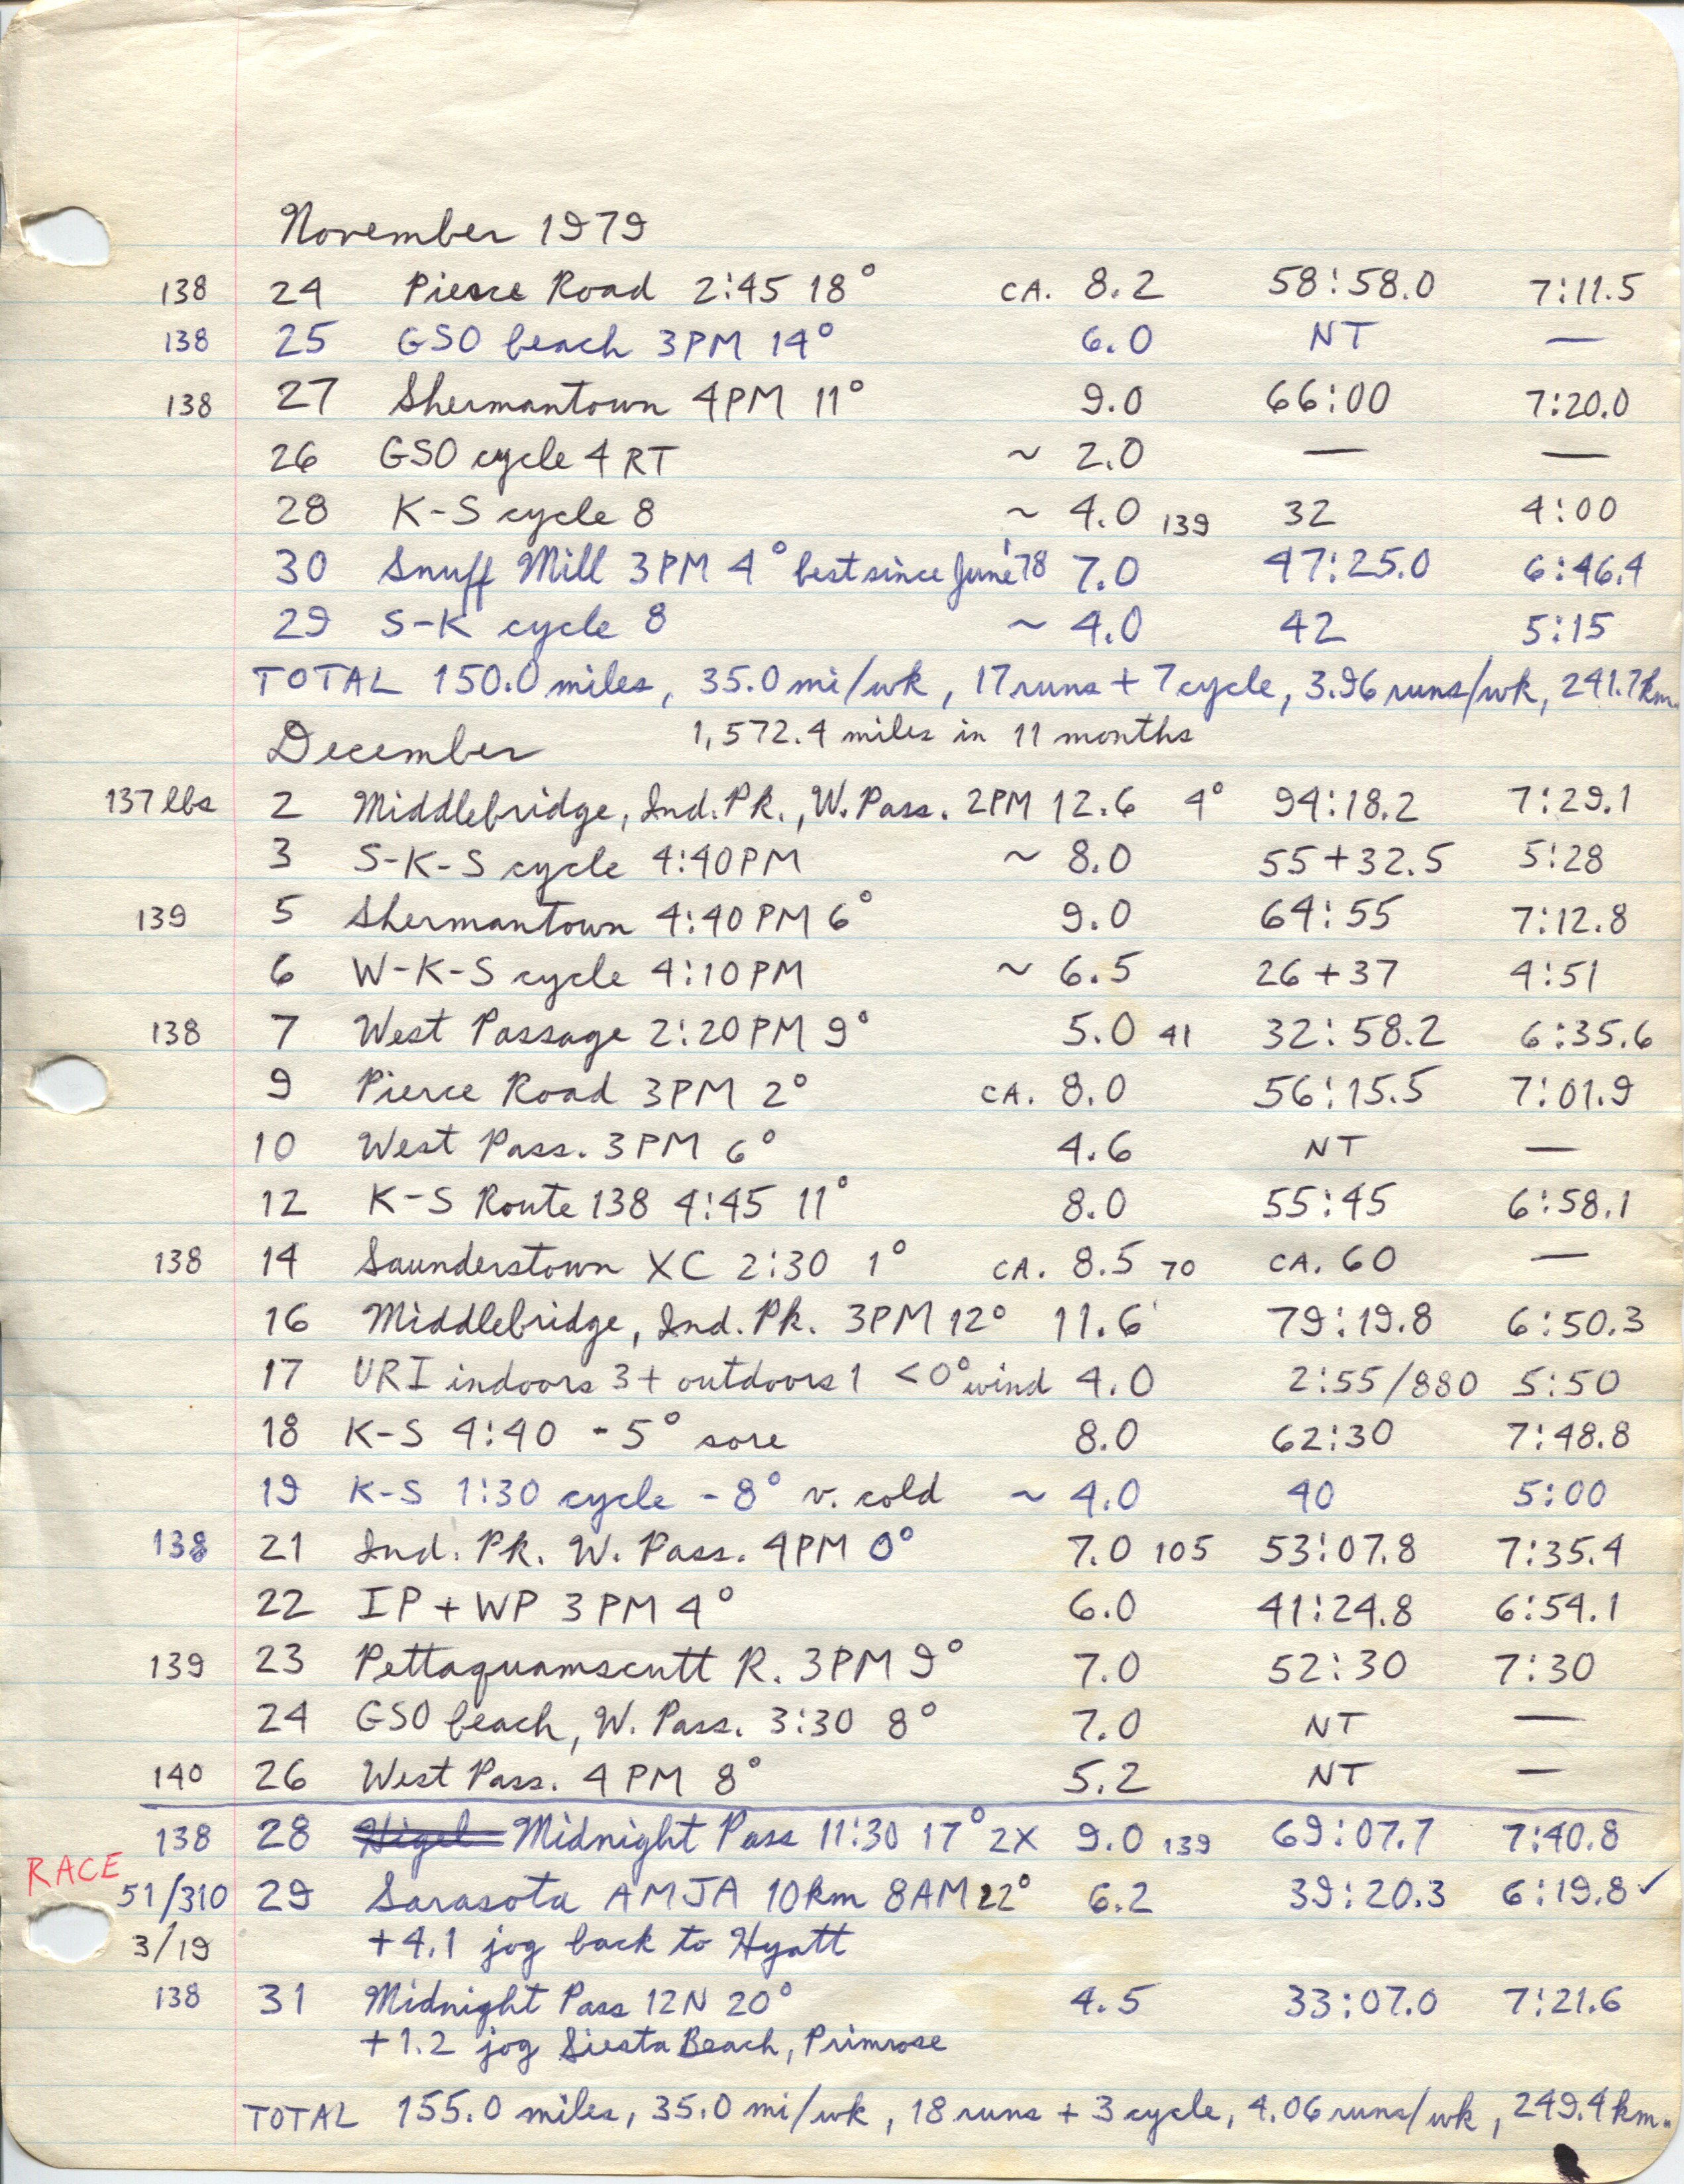 November 1979
138 24 Pierce Road 2:45 18° CA. 8.2 58:58.0 7:11.5
138 25 GSO beach 3PM 14° 6.0 NT —
138 27 Shermantown 4PM 11° 9.0 66:00 7:20.0
26 GSO cycle 4 RT ~ 2.0 — —
28 K-S cycle 8 ~ 4.0 139 32 4:00
30 Snuff Mill 3PM 4° best since June '78 7.0 47:25.0 6:46.4
29 S-K cycle 8 ~ 4.0 42 5:15
TOTAL 150.0 miles, 35.0 mi/wk, 17 runs + 7 cycle, 3.96 runs/wk, 241.7 km.
December 1,572.4 miles in 11 months
137 lbs 2 Middlebridge, Ind. Pk., W. Pass. 2PM 12.6 4° 94:18.2 7:29.1
3 S-K-S cycle 4:40PM ~ 8.0 55+32.5 5:28
139 5 Shermantown 4:40 PM 6° 9.0 64:55 7:12.8
6 W-K-S cycle 4:10PM ~ 6.5 26+37 4:51
138 7 West Passage 2:20PM 9° 5.0 41 32:58.2 6:35.6
9 Pierce Road 3PM 2° CA. 8.0 56:15.5 7:01.9
10 West Pass. 3PM 6° 4.6 NT —
12 K-S Route 138 4:45 11° 8.0 55:45 6:58.1
138 14 Saunderstown XC 2:30 1° CA. 8.5 70 CA. 60 —
16 Middlebridge, Ind. Pk. 3PM 12° 11.6 79:19.8 6:50.3
17 URI indoors 3+ outdoors 1 <0° wind 4.0 2:55/880 5:50
18 K-S 4:40 -5° sore 8.0 62:30 7:48.8
19 K-S 1:30 cycle -8° v. cold ~ 4.0 40 5:00
138 21 Ind. Pk. W. Pass. 4PM 0° 7.0 105 53:07.8 7:35.4
22 IP + WP 3 PM 4° 6.0 41:24.8 6:54.1
139 23 Pettaquamscutt R. 3PM 9° 7.0 52:30 7:30
24 GSO beach, W. Pass. 3:30 8° 7.0 NT —
140 26 West Pass. 4 PM 8° 5.2 NT —
138 28 Higel Midnight Pass 11:30 17° 2X 9.0 139 69:07.7 7:40.8
RACE
51/310 29 Sarasota AMJA 10km 8AM 22° 6.2 39:20.3 6:19.8 ✓
3/19 +4.1 jog back to Hyatt
138 31 Midnight Pass 12N 20° 4.5 33:07.0 7:21.6
+1.2 jog Siesta Beach, Primrose
TOTAL 155.0 miles, 35.0 mi/wk, 18 runs + 3 cycle, 4.06 runs/wk, 249.4 km.